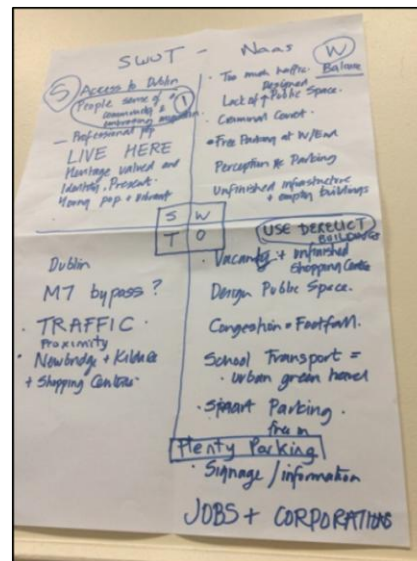 SWOT - Naas
S
Access to Dublin
People sense of
community &
1
Professional pop
LIVE HERE
Heritage valued and
Identity. Present.
Young pop + vibrant
W
Balance
Too much traffic.
designed
Lack of Public Space.
Criminal Court.
Free Parking at W/End
Perception Parking
Unfinished infrastructure
+ empty buildings
S W
T O
Dublin
M7 bypass?
TRAFFIC.
Proximity
Newbridge + Kildare
+ Shopping Centres
USE DERELICT
BUILDINGS
Vacancy + unfinished
Shopping Centre
Design Public Space.
Congestion = Footfall.
School Transport =
urban green
Smart Parking.
free
Plenty Parking
Signage / information
JOBS + CORPORATIONS